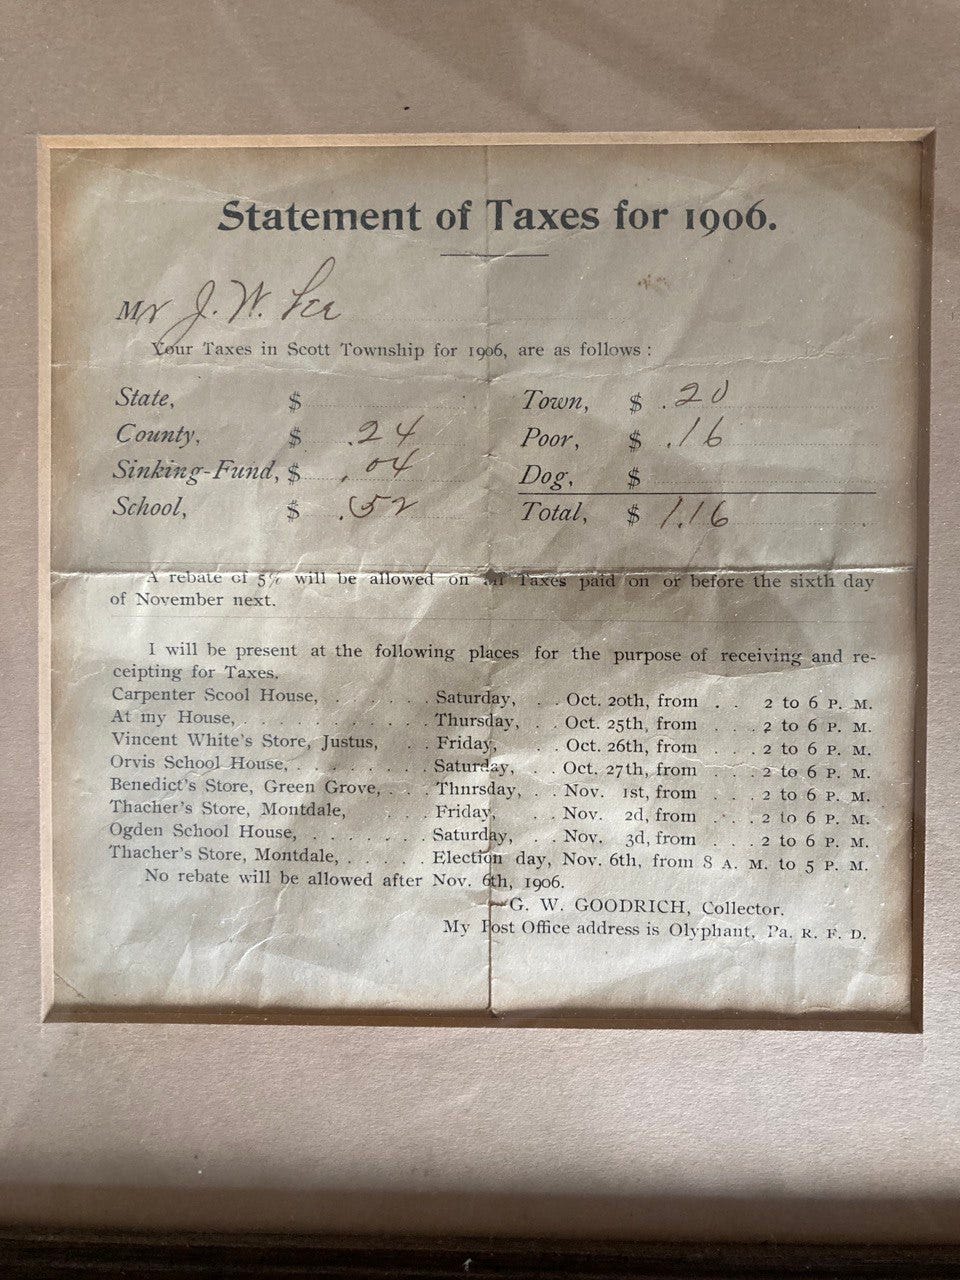 Statement of Taxes for 1906.
Mr J. W. Lee
Your Taxes in Scott Township for 1906, are as follows :
State, $ Town, $ .20
County, $ .24 Poor, $ .16
Sinking-Fund, $ .04 Dog, $
School, $ .52 Total, $ 1.16
A rebate of 5% will be allowed on all Taxes paid on or before the sixth day
of November next.
I will be present at the following places for the purpose of receiving and re-
ceipting for Taxes.
Carpenter Scool House, . . . . . . Saturday, . . Oct. 20th, from . . 2 to 6 P. M.
At my House, . . . . . . . . . . Thursday, . . Oct. 25th, from . . . 2 to 6 P. M.
Vincent White's Store, Justus, . . Friday, . . Oct. 26th, from . . . 2 to 6 P. M.
Orvis School House, . . . . . . . Saturday, . . Oct. 27th, from . . . 2 to 6 P. M.
Benedict's Store, Green Grove, . . . Thnrsday, . . Nov. 1st, from . . . 2 to 6 P. M.
Thacher's Store, Montdale, . . . Friday, . . Nov. 2d, from . . . 2 to 6 P. M.
Ogden School House, . . . . . . Saturday, . . Nov. 3d, from . . . 2 to 6 P. M.
Thacher's Store, Montdale, . . . . . Election day, Nov. 6th, from 8 A. M. to 5 P. M.
No rebate will be allowed after Nov. 6th, 1906.
G. W. GOODRICH, Collector.
My Post Office address is Olyphant, Pa. R. F. D.